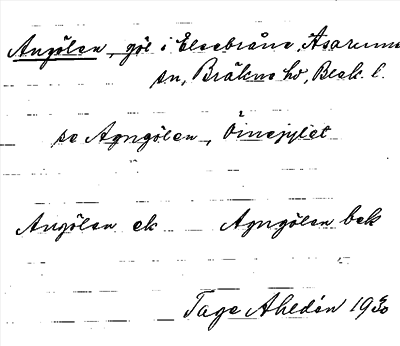 Angölen, göl i Elsebråne, Åsarums
sn, Bräkne hd, Blek. l.
se Agngölen,
Angölen ek Agngölen bek
Tage Ahldén 1930